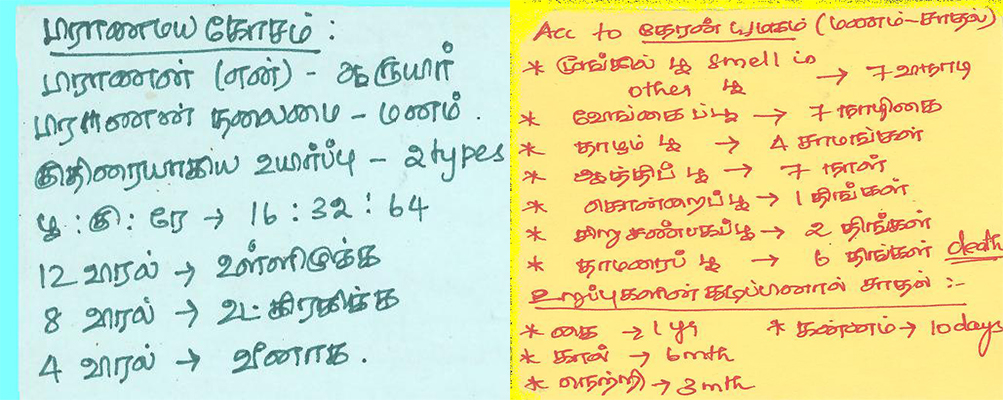 பராணமய கோசம் :
பராணன் (என்) - ஆருயிர்
பராணன் தலைமை - மனம் .
குதிரையாகிய உயிர்ப்பு - 2 types
பூ : கு : ரே → 16 : 32 : 64
12 விரல் → உள்ளிழுக்க
8 விரல் → உட்கிரகிக்க
4 விரல் → வீணாக .
Acc to தேரன் யமகம் (மணம் - சாதல்)
* மூங்கில் பூ smell in
other பூ → 7 வினாடி
* வேங்கைப்பூ → 7 நாழிகை
* தாழம் பூ → 4 சாமங்கள்
* ஆத்திப் பூ → 7 நாள்
* கொன்றைப்பூ → 1 திங்கள்
* சிறு சண்பகப்பூ → 2 திங்கள்
* தாமரைப் பூ → 6 திங்கள் death
உறுப்புகளின் துடிப்பினால் சாதல் :-
* கை → 1 yr * கன்னம் → 10 days
* கால் → 6 mth
* நெற்றி → 3 mth